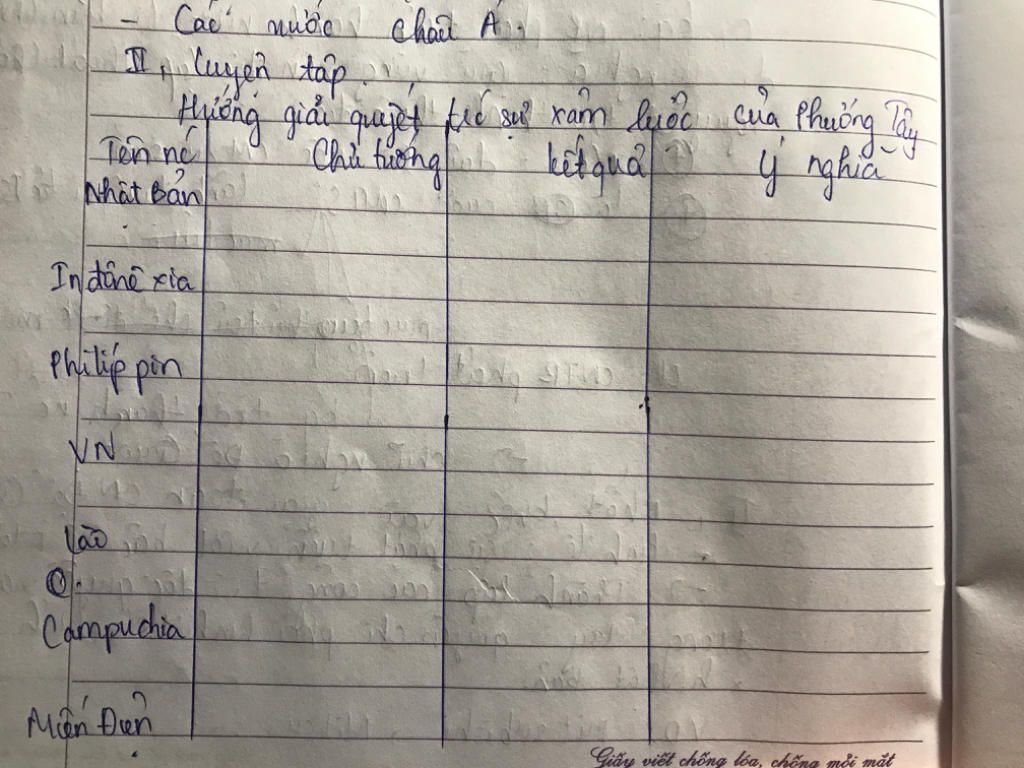 - Các nước Châu Á.
II, Luyện tập.
Hướng giải quyết trc sự xâm lược của Phương Tây
Tên nc Chủ tương kết quả ý nghĩa
Nhật Bản
In đônê xia
Philíp pin
VN
Lào
Campuchia
Miến Điện
Giấy viết chống lóa, chống mỏi mắt